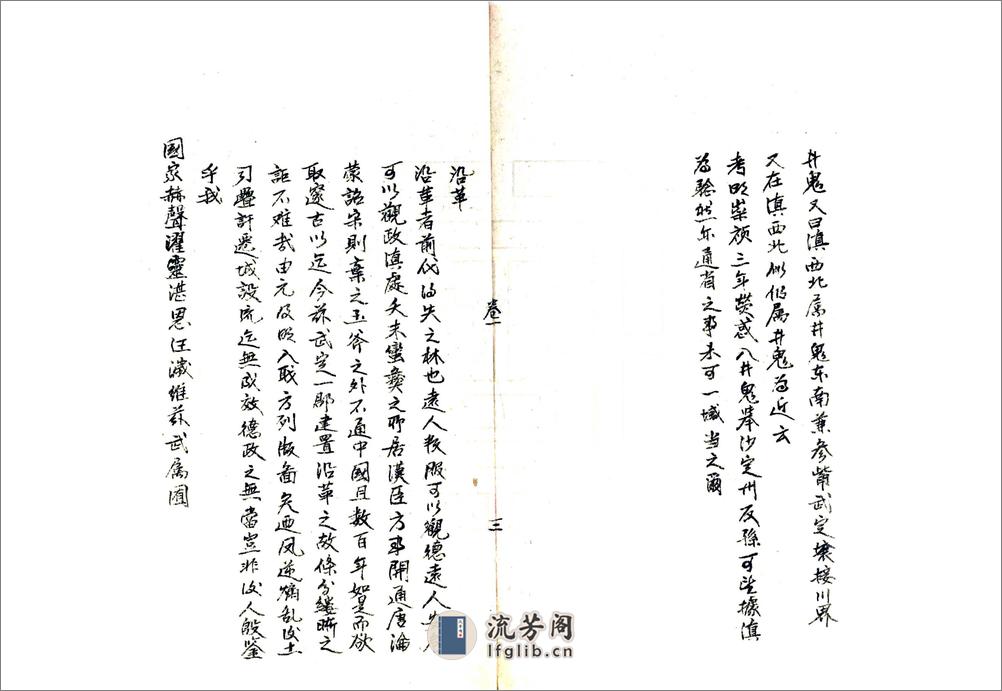 井鬼又曰滇西北属井鬼东南兼参觜武定壤接川界
又在滇西北似仍属井鬼为近云
考明崇祯三年荧惑入井鬼奉沙定州反孫可望據滇
为驗然亦通省之事未可一域当之爾
卷一
三
沿革
沿革者前代得失之林也遠人教服可以觀德遠人
可以觀政滇處天末蠻彝之所居漢臣方事開通唐淪
蒙詔宋則棄之玉斧之外不通中國且数百年如是而欲
取邃古以迄今兹武定一郡建置沿革之故條分縷晰之
詎不难哉由元及明入职方列版啚矣迺凤逆煽乱汝土
司疊訐悉城設流迄無成效德政之無當豈非汝人殷鉴
乎我
國家赫聲濯靈湛恩汪濊维兹武属圉
流芳阁
lfglib.cn